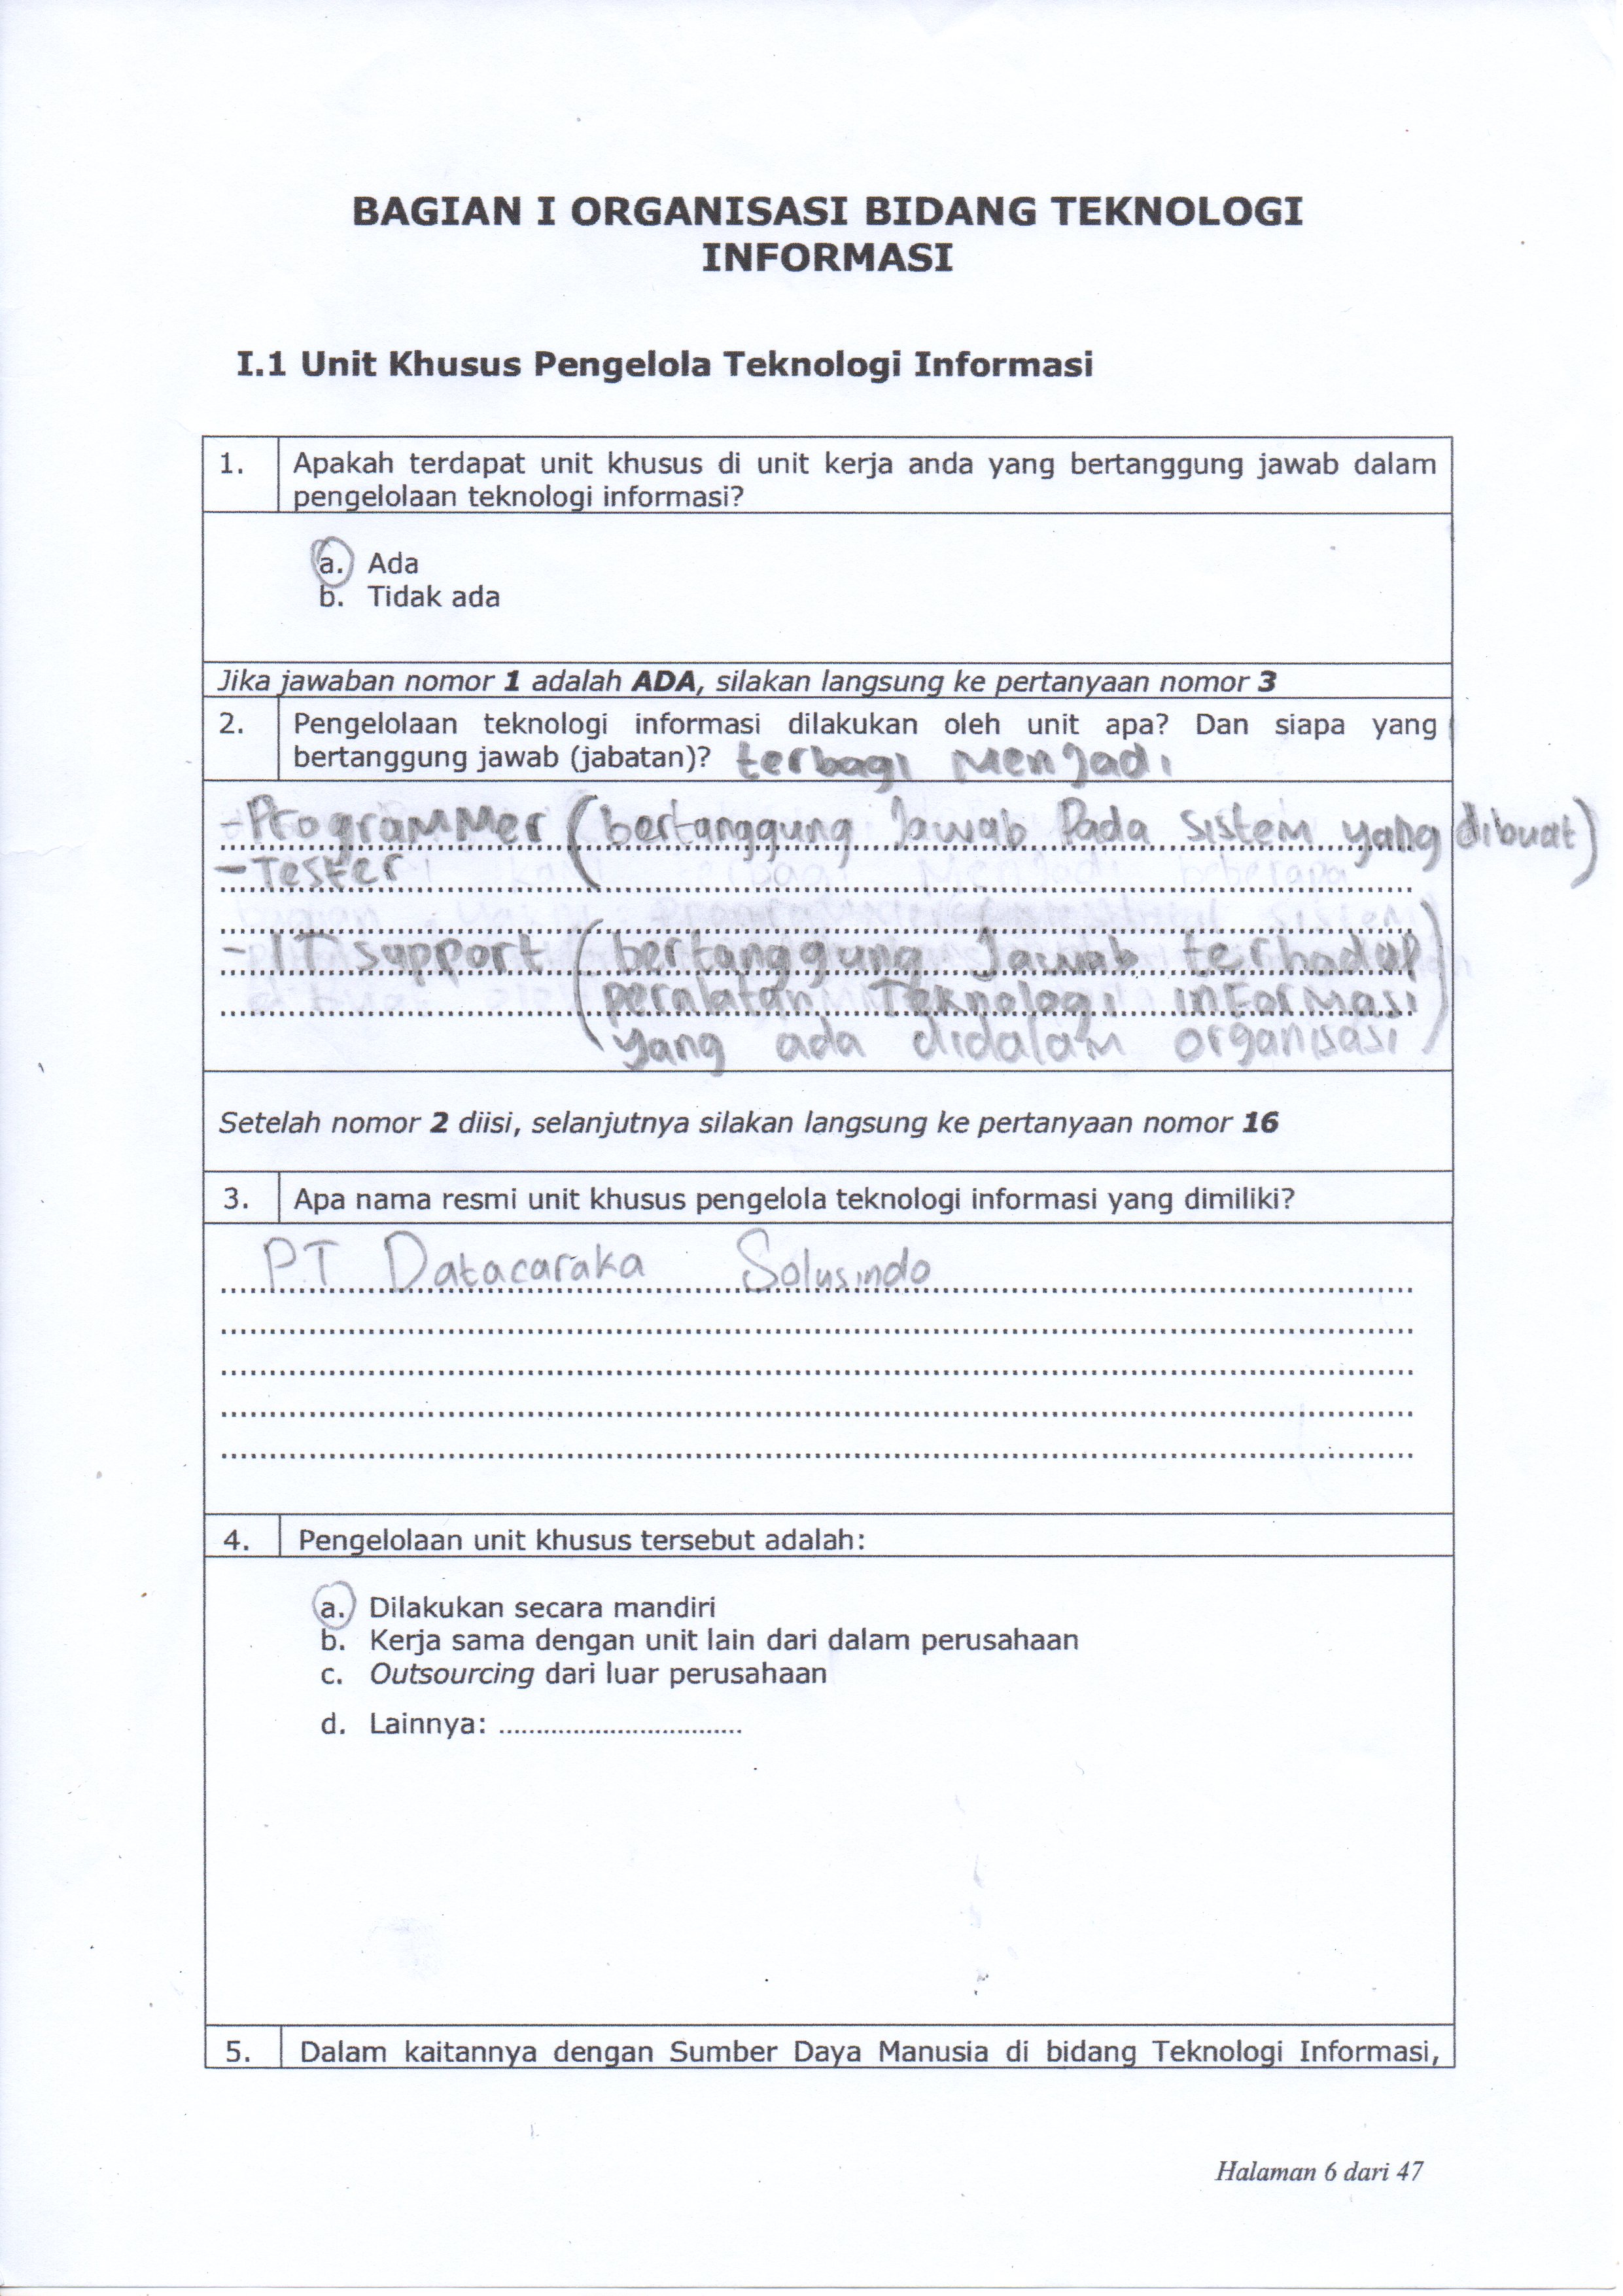 BAGIAN I ORGANISASI BIDANG TEKNOLOGI
INFORMASI
I.1 Unit Khusus Pengelola Teknologi Informasi
1. Apakah terdapat unit khusus di unit kerja anda yang bertanggung jawab dalam
pengelolaan teknologi informasi?
a. Ada
b. Tidak ada
Jika jawaban nomor 1 adalah ADA, silakan langsung ke pertanyaan nomor 3
2. Pengelolaan teknologi informasi dilakukan oleh unit apa? Dan siapa yang
bertanggung jawab (jabatan)? terbagi menjadi
- Programmer (bertanggung jawab pada sistem yang dibuat)
- Tester
- IT support (bertanggung jawab terhadap
peralatan Teknologi informasi
yang ada didalam organisasi)
Setelah nomor 2 diisi, selanjutnya silakan langsung ke pertanyaan nomor 16
3. Apa nama resmi unit khusus pengelola teknologi informasi yang dimiliki?
PT Datacaraka Solusindo
4. Pengelolaan unit khusus tersebut adalah:
a. Dilakukan secara mandiri
b. Kerja sama dengan unit lain dari dalam perusahaan
c. Outsourcing dari luar perusahaan
d. Lainnya: ................................
5. Dalam kaitannya dengan Sumber Daya Manusia di bidang Teknologi Informasi,
Halaman 6 dari 47